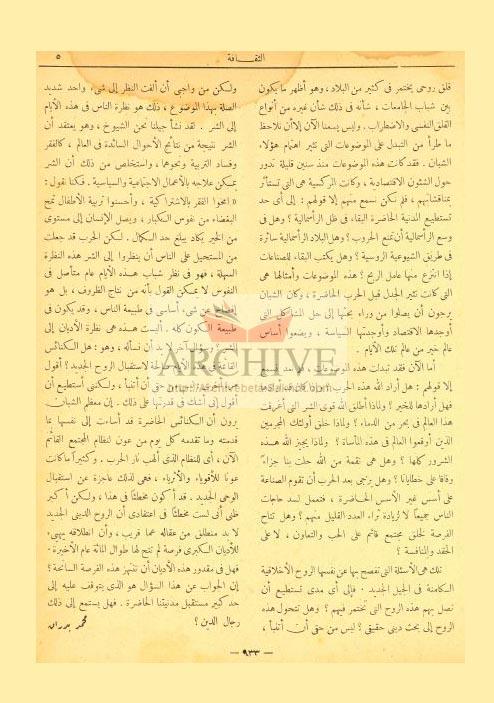 الثقـافة
٥
قلق روحى يختمر فى كثير من البلاد، وهو أظهر ما يكون
بين شباب الجامعات، شأنه فى ذلك شأن غيره من أنواع
القلق النفسى والاضطراب. وليس يسعنا الآن إلا أن نلاحظ
ما طرأ من التبدل على الموضوعات التى تثير اهتمام هؤلاء
الشبان. فقد كانت هذه الموضوعات منذ سنين قليلة تدور
حول الشئون الاقتصادية، وكانت الماركسية هى التى تستأثر
بمناقشاتهم، فلم نكن نسمع منهم إلا قولهم: إلى أى حد
تستطيع المدنية الحاضرة البقاء فى ظل الرأسمالية؟ وهل فى
وسع الرأسمالية أن تمنع الحروب؟ وهل البلاد الرأسمالية سائرة
فى طريق الشيوعية الروسية؟ وهل يكتب البقاء للصناعات
إذا انتزع منها عامل الربح؟ هذه الموضوعات وأمثالها هى
التى كانت تثير الجدل قبل الحرب الحاضرة، وكان الشبان
يرجون أن يصلوا من وراء بحثها إلى حل المشاكل التى
أوجدها الاقتصاد وأوجدتها السياسة، ويضعوا أساس
عالم خير من عالم تلك الأيام.
أما الآن فقد تبدلت هذه الموضوعات، فلم نعد نسمع
إلا قولهم: هل أراد الله هذه الحرب
فهل أرادها للخير؟ ولماذا أطلق الله قوى الشر التى أغرقت
هذا العالم فى بحر من الدماء؟ ولماذا خلق أولئك المجرمين
الذين أوقعوا العالم فى هذه المأساة؟ ولماذا يجيز الله هذه
الشرور كلها؟ وهل هى نقمة من الله حلت بنا جزاءً
وفاقا على خطايانا؟ وهل يرجى بعد الحرب أن تقوم الصناعة
على أسس غير الأسس الحاضرة، فتعمل لسد حاجات
الناس جميعًا لا لزيادة ثراء العدد القليل منهم؟ وهل تتاح
الفرصة لخلق مجتمع قائم على الحب والتعاون، لا على
الحقد والمنافسة؟
تلك هى الأسئلة التى تفصح بها عن نفسها الروح الأخلاقية
الكامنة فى الجيل الجديد. فإلى أى مدى تستطيع أن
تصل بهم هذه الروح التى تختمر فيهم؟ وهل تتحول هذه
الروح إلى بحث دينى حقيقى؟ ليس من حقى أن أتنبأ،
ولكن من واجبى أن ألفت النظر إلى شىء واحد شديد
الصلة بهذا الموضوع، ذلك هو نظرة الناس فى هذه الأيام
إلى الشر. لقد نشأ جيلنا نحن الشيوخ، وهو يعتقد أن
الشر نتيجة من نتائج الأحوال السائدة فى العالم، كالفقر
وفساد التربية ونحوهما، واستخلص من ذلك أن الشر
يمكن علاجه بالأعمال الاجتماعية والسياسية. فكنا نقول:
« امحوا الفقر بالاشتراكية، وأحسنوا تربية الأطفال تمح
البغضاء من نفوس الكبار، ويصل الإنسان إلى مستوى
من الخير يكاد يبلغ حد الكمال. لكن الحرب قد جعلت
من المستحيل على الناس أن ينظروا إلى الشر هذه النظرة
السهلة، فهو فى نظر شباب هذه الأيام عام متأصل فى
النفوس لا يمكن القول بأنه من نتاج الظروف، بل هو
إفصاح عن شىء أساسى فى طبيعة الناس، وقد يكون فى
طبيعة الكون كله. أليست هذه هى نظرة الأديان إلى
الشر؟ سؤال آخر لا بد أن نسأله، وهو: هل الكنائس
القائمة فى هذه الأيام صالحة لاستقبال الروح الجديد؟ أقول
حق أن أتنبأ، ولكنى أستطيع أن
أقول إنى أشك فى قدرتها على ذلك. إن معظم الشبان
يرون أن الكنائس الحاضرة قد أساءت إلى نفسها بما
قدمته وما تقدمه كل يوم من عون لنظام المجتمع القائم
الآن، أى للنظام الذى ألهب نار الحرب. وكثيرا ما كانت
عونًا للأقوياء والأثرياء، فهى لذلك عاجزة عن استقبال
الوحى الجديد. قد أكون مخطئا فى هذا، ولكن أكبر
ظنى أنى لست مخطئًا فى اعتقادى أن الروح الدينى الجديد
لا بد منطلق من عقاله عما قريب، وأن انطلاقه يهيىء
للأديان الكبرى فرصة لم تتح لها طوال المائة عام الأخيرة.
فهل فى مقدور هذه الأديان أن تنتهز هذه الفرصة السانحة؟
إن الجواب عن هذا السؤال هو الذى يتوقف عليه إلى
حد كبير مستقبل مدنيتنا الحاضرة. فهل يستمع إلى ذلك
رجال الدين؟
محمد بدران
— ٩٣٣ —
ARCHIVE
http://Archivebeta.Sakhrit.com